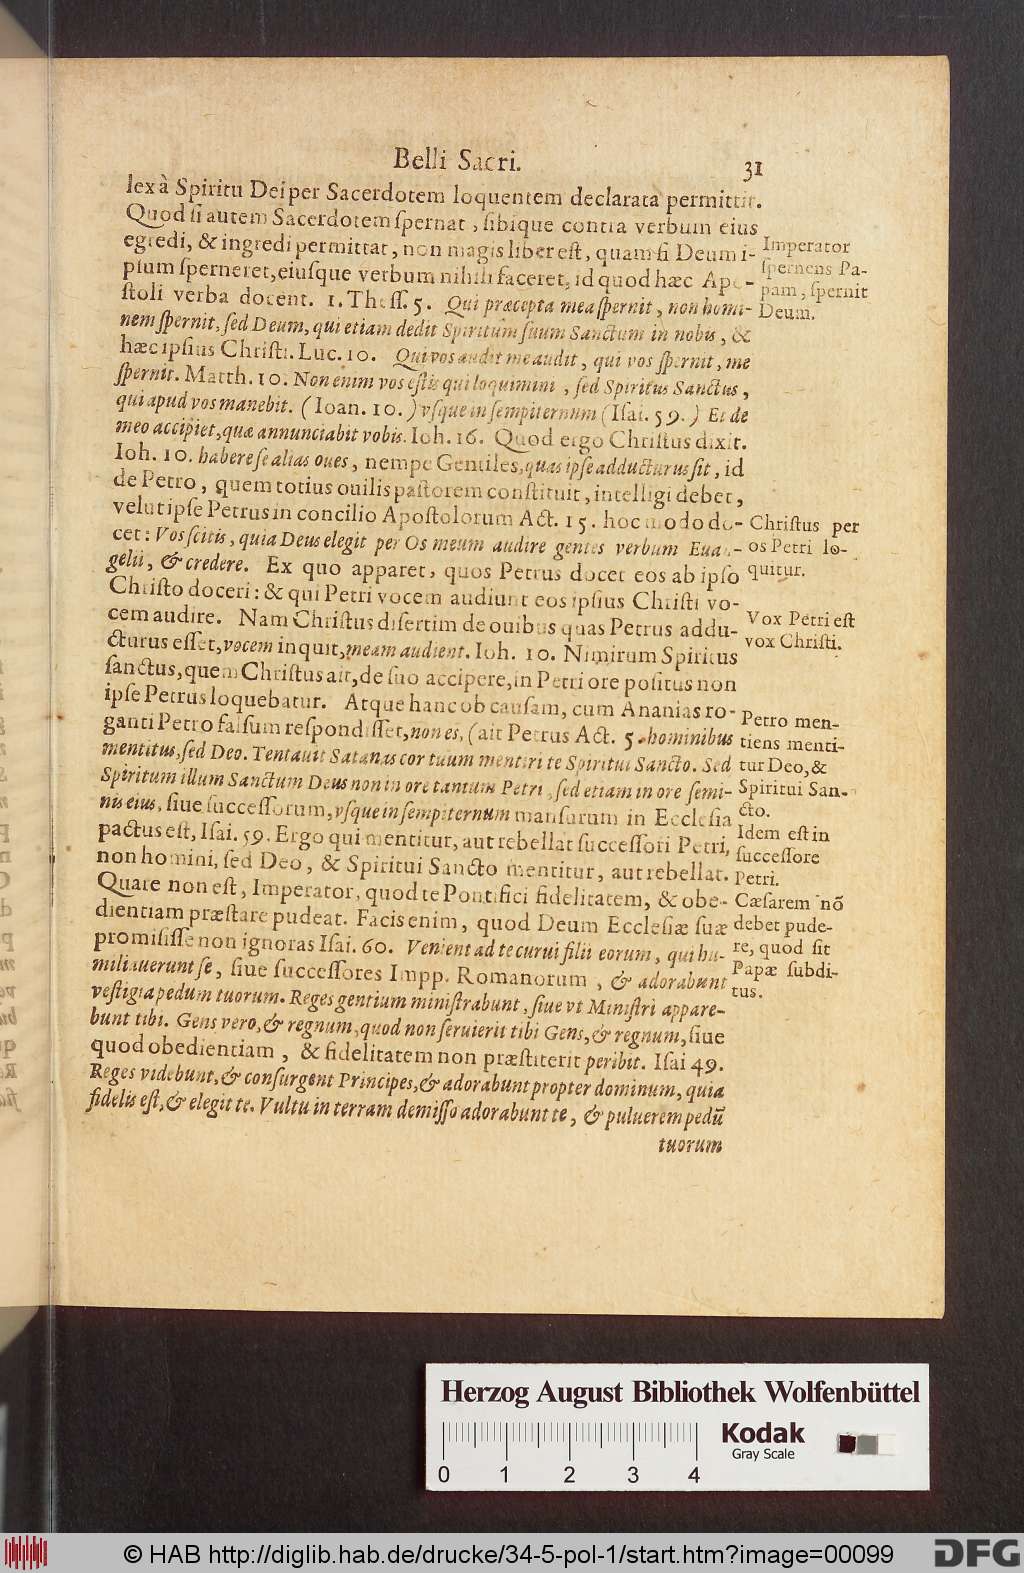 Belli Sacri. 31
lex à Spiritu Dei per Sacerdotem loquentem declarata permittit.
Quod si autem Sacerdotem spernat, sibique contra verbum eius
egredi, & ingredi permittat, non magis liber est, quam si Deum i-
psum sperneret, eiusque verbum nihili faceret, id quod hæc Apo-
stoli verba docent. 1. Thess. 5. Qui præcepta mea spernit, non homi-
nem spernit, sed Deum, qui etiam dedit Spiritum suum Sanctum in nobis, &
hæc ipsius Christi. Luc. 10. Qui vos audit me audit, qui vos spernit, me
spernit. Matth. 10. Non enim vos estis qui loquimini, sed Spiritus Sanctus,
qui apud vos manebit. (Ioan. 10.) vsque in sempiternum (Isai. 59.) Et de
meo accipiet, quæ annunciabit vobis. Ioh. 16. Quod ergo Christus dixit.
Ioh. 10. habere se alias oues, nempe Gentiles, quas ipse adducturus sit, id
de Petro, quem totius ouilis pastorem constituit, intelligi debet,
velut ipse Petrus in concilio Apostolorum Act. 15. hoc modo do-
cet: Vos scitis, quia Deus elegit per Os meum audire gentes verbum Euan-
gelii, & credere. Ex quo apparet, quos Petrus docet eos ab ipso
Christo doceri: & qui Petri vocem audiunt eos ipsius Christi vo-
cem audire. Nam Christus disertim de ouibus quas Petrus addu-
cturus esset, vocem inquit, meam audient. Ioh. 10. Nimirum Spiritus
sanctus, quem Christus ait, de suo accipere, in Petri ore positus non
ipse Petrus loquebatur. Atque hanc ob causam, cum Ananias ro-
ganti Petro falsum respondisset, non es, (ait Petrus Act. 5. hominibus
mentitus, sed Deo. Tentauit Satanas cor tuum mentiri te Spiritui Sancto. Sed
Spiritum illum Sanctum Deus non in ore tantum Petri, sed etiam in ore semi-
nis eius, siue successorum, vsque in sempiternum mansurum in Ecclesia
pactus est, Isai. 59. Ergo qui mentitur, aut rebellat successori Petri,
non homini, sed Deo, & Spiritui Sancto mentitur, aut rebellat.
Quare non est, Imperator, quod te Pontifici fidelitatem, & obe-
dientiam præstare pudeat. Facis enim, quod Deum Ecclesiæ suæ
promisisse non ignoras Isai. 60. Venient ad te curui filii eorum, qui hu-
miliauerunt se, siue successores Impp. Romanorum, & adorabunt
vestigia pedum tuorum. Reges gentium ministrabunt, siue vt Ministri appare-
bunt tibi. Gens vero, & regnum, quod non seruierit tibi Gens, & regnum, siue
quod obedientiam, & fidelitatem non præstiterit peribit. Isai 49.
Reges videbunt, & consurgent Principes, & adorabunt propter dominum, quia
fidelis est, & elegit te. Vultu in terram demisso adorabunt te, & puluerem pedū
tuorum
Imperator
spernens Pa-
pam, spernit
Deum.
Christus per
os Petri lo-
quitur.
Vox Petri est
vox Christi.
Petro men-
tiens menti-
tur Deo, &
Spiritui San-
cto.
Idem est in
successore
Petri.
Cæsarem nō
debet pude-
re, quod sit
Papæ subdi-
tus.
Herzog August Bibliothek Wolfenbüttel
Kodak
Gray Scale
0 1 2 3 4
© HAB http://diglib.hab.de/drucke/34-5-pol-1/start.htm?image=00099
DFG